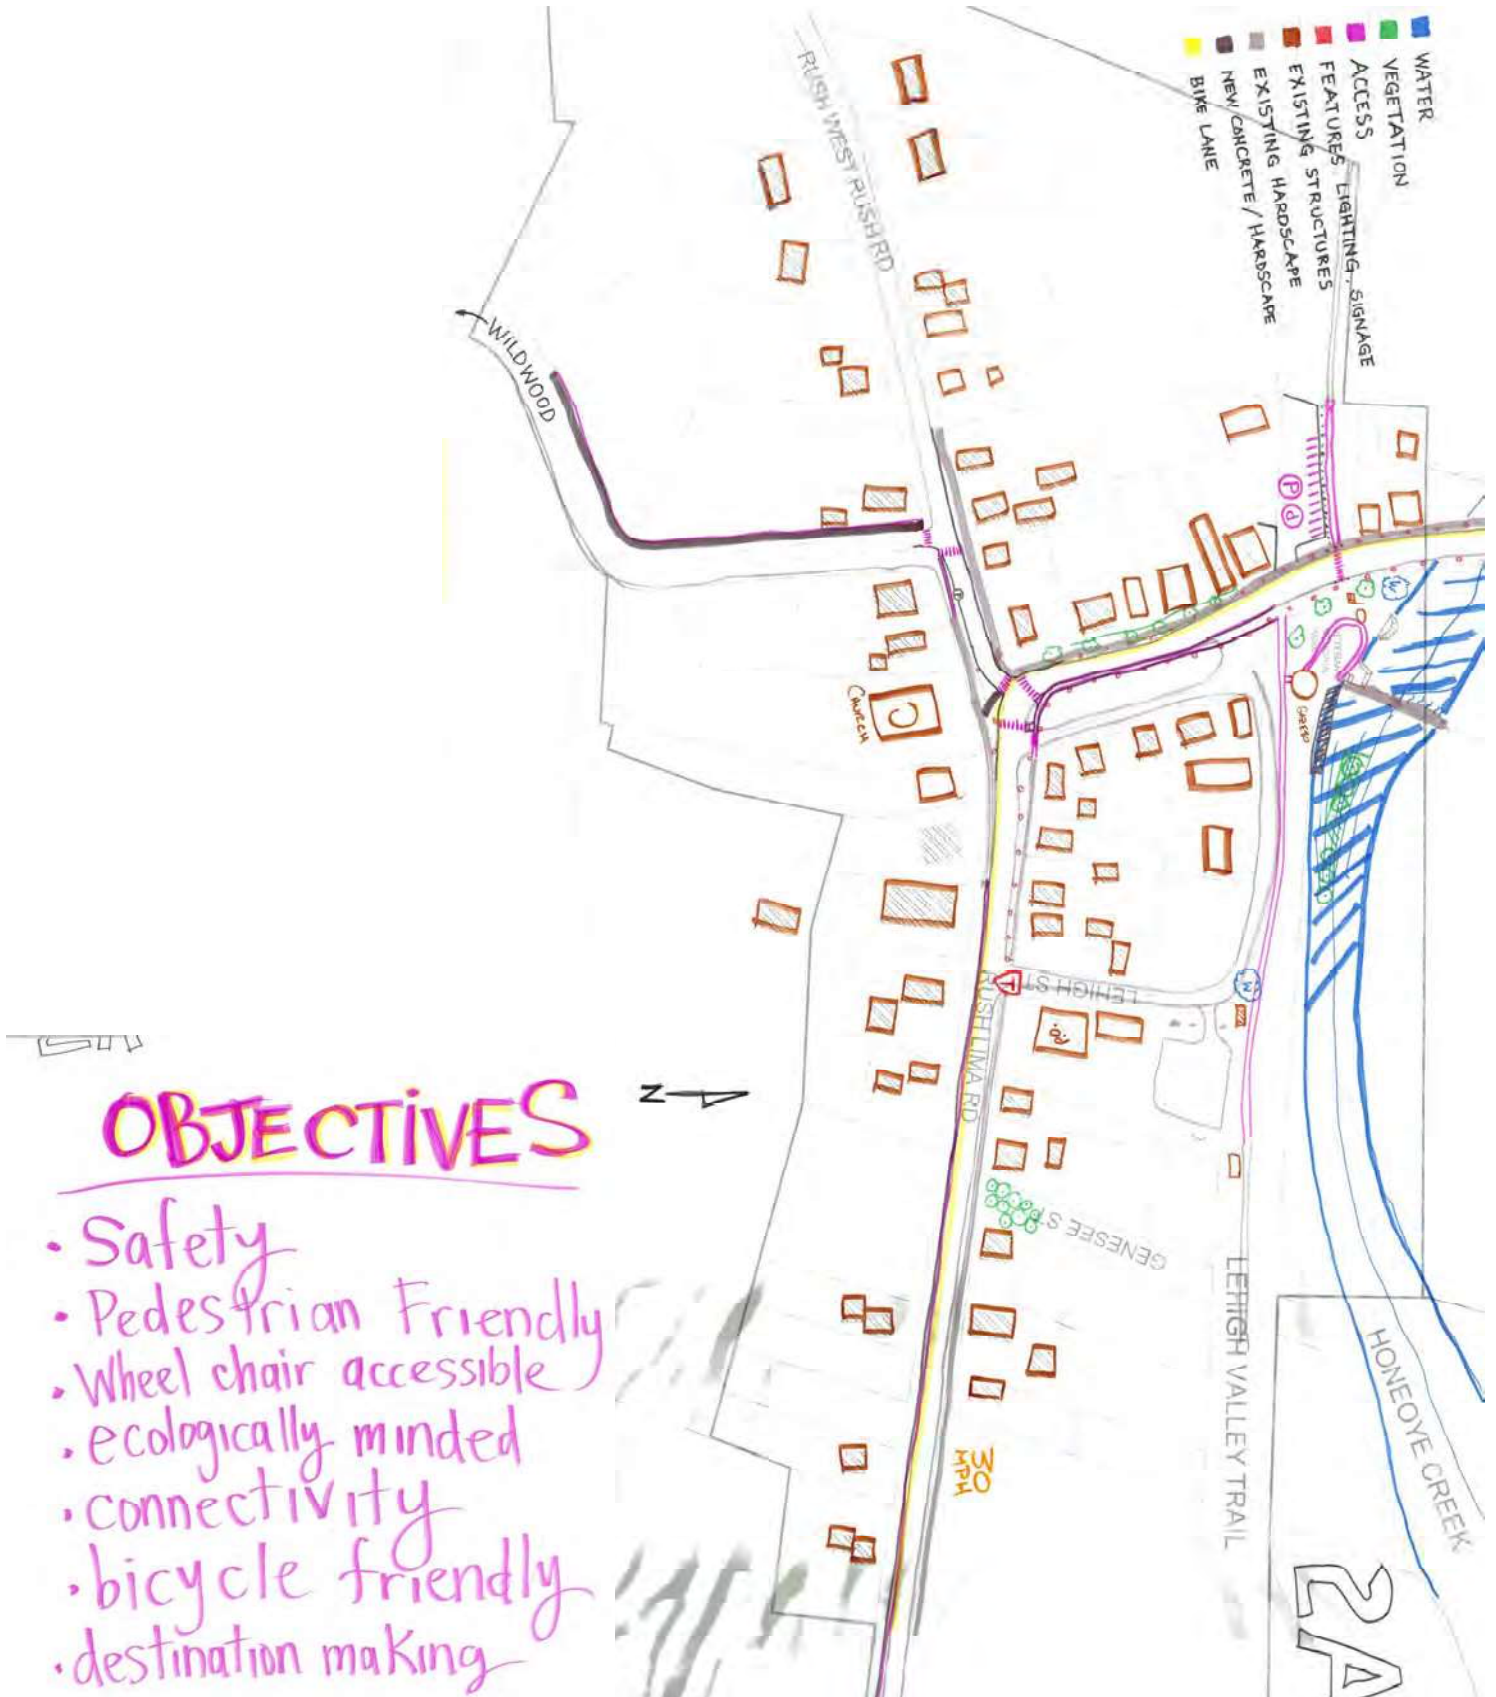 WATER
VEGETATION
ACCESS
FEATURES, LIGHTING, SIGNAGE
EXISTING STRUCTURES
EXISTING HARDSCAPE
NEW CONCRETE / HARDSCAPE
BIKE LANE
RUSH WEST RUSH RD
WILDWOOD
P
P
P
W
GAZEBO
CHURCH
C
T
LEHIGH ST
W
P.O.
RUSH LIMA RD
N
GENESEE ST
LEHIGH VALLEY TRAIL
HONEOYE CREEK
30
MPH
2A
OBJECTIVES
• Safety
• Pedestrian Friendly
• Wheel chair accessible
• ecologically minded
• connectivity
• bicycle friendly
• destination making